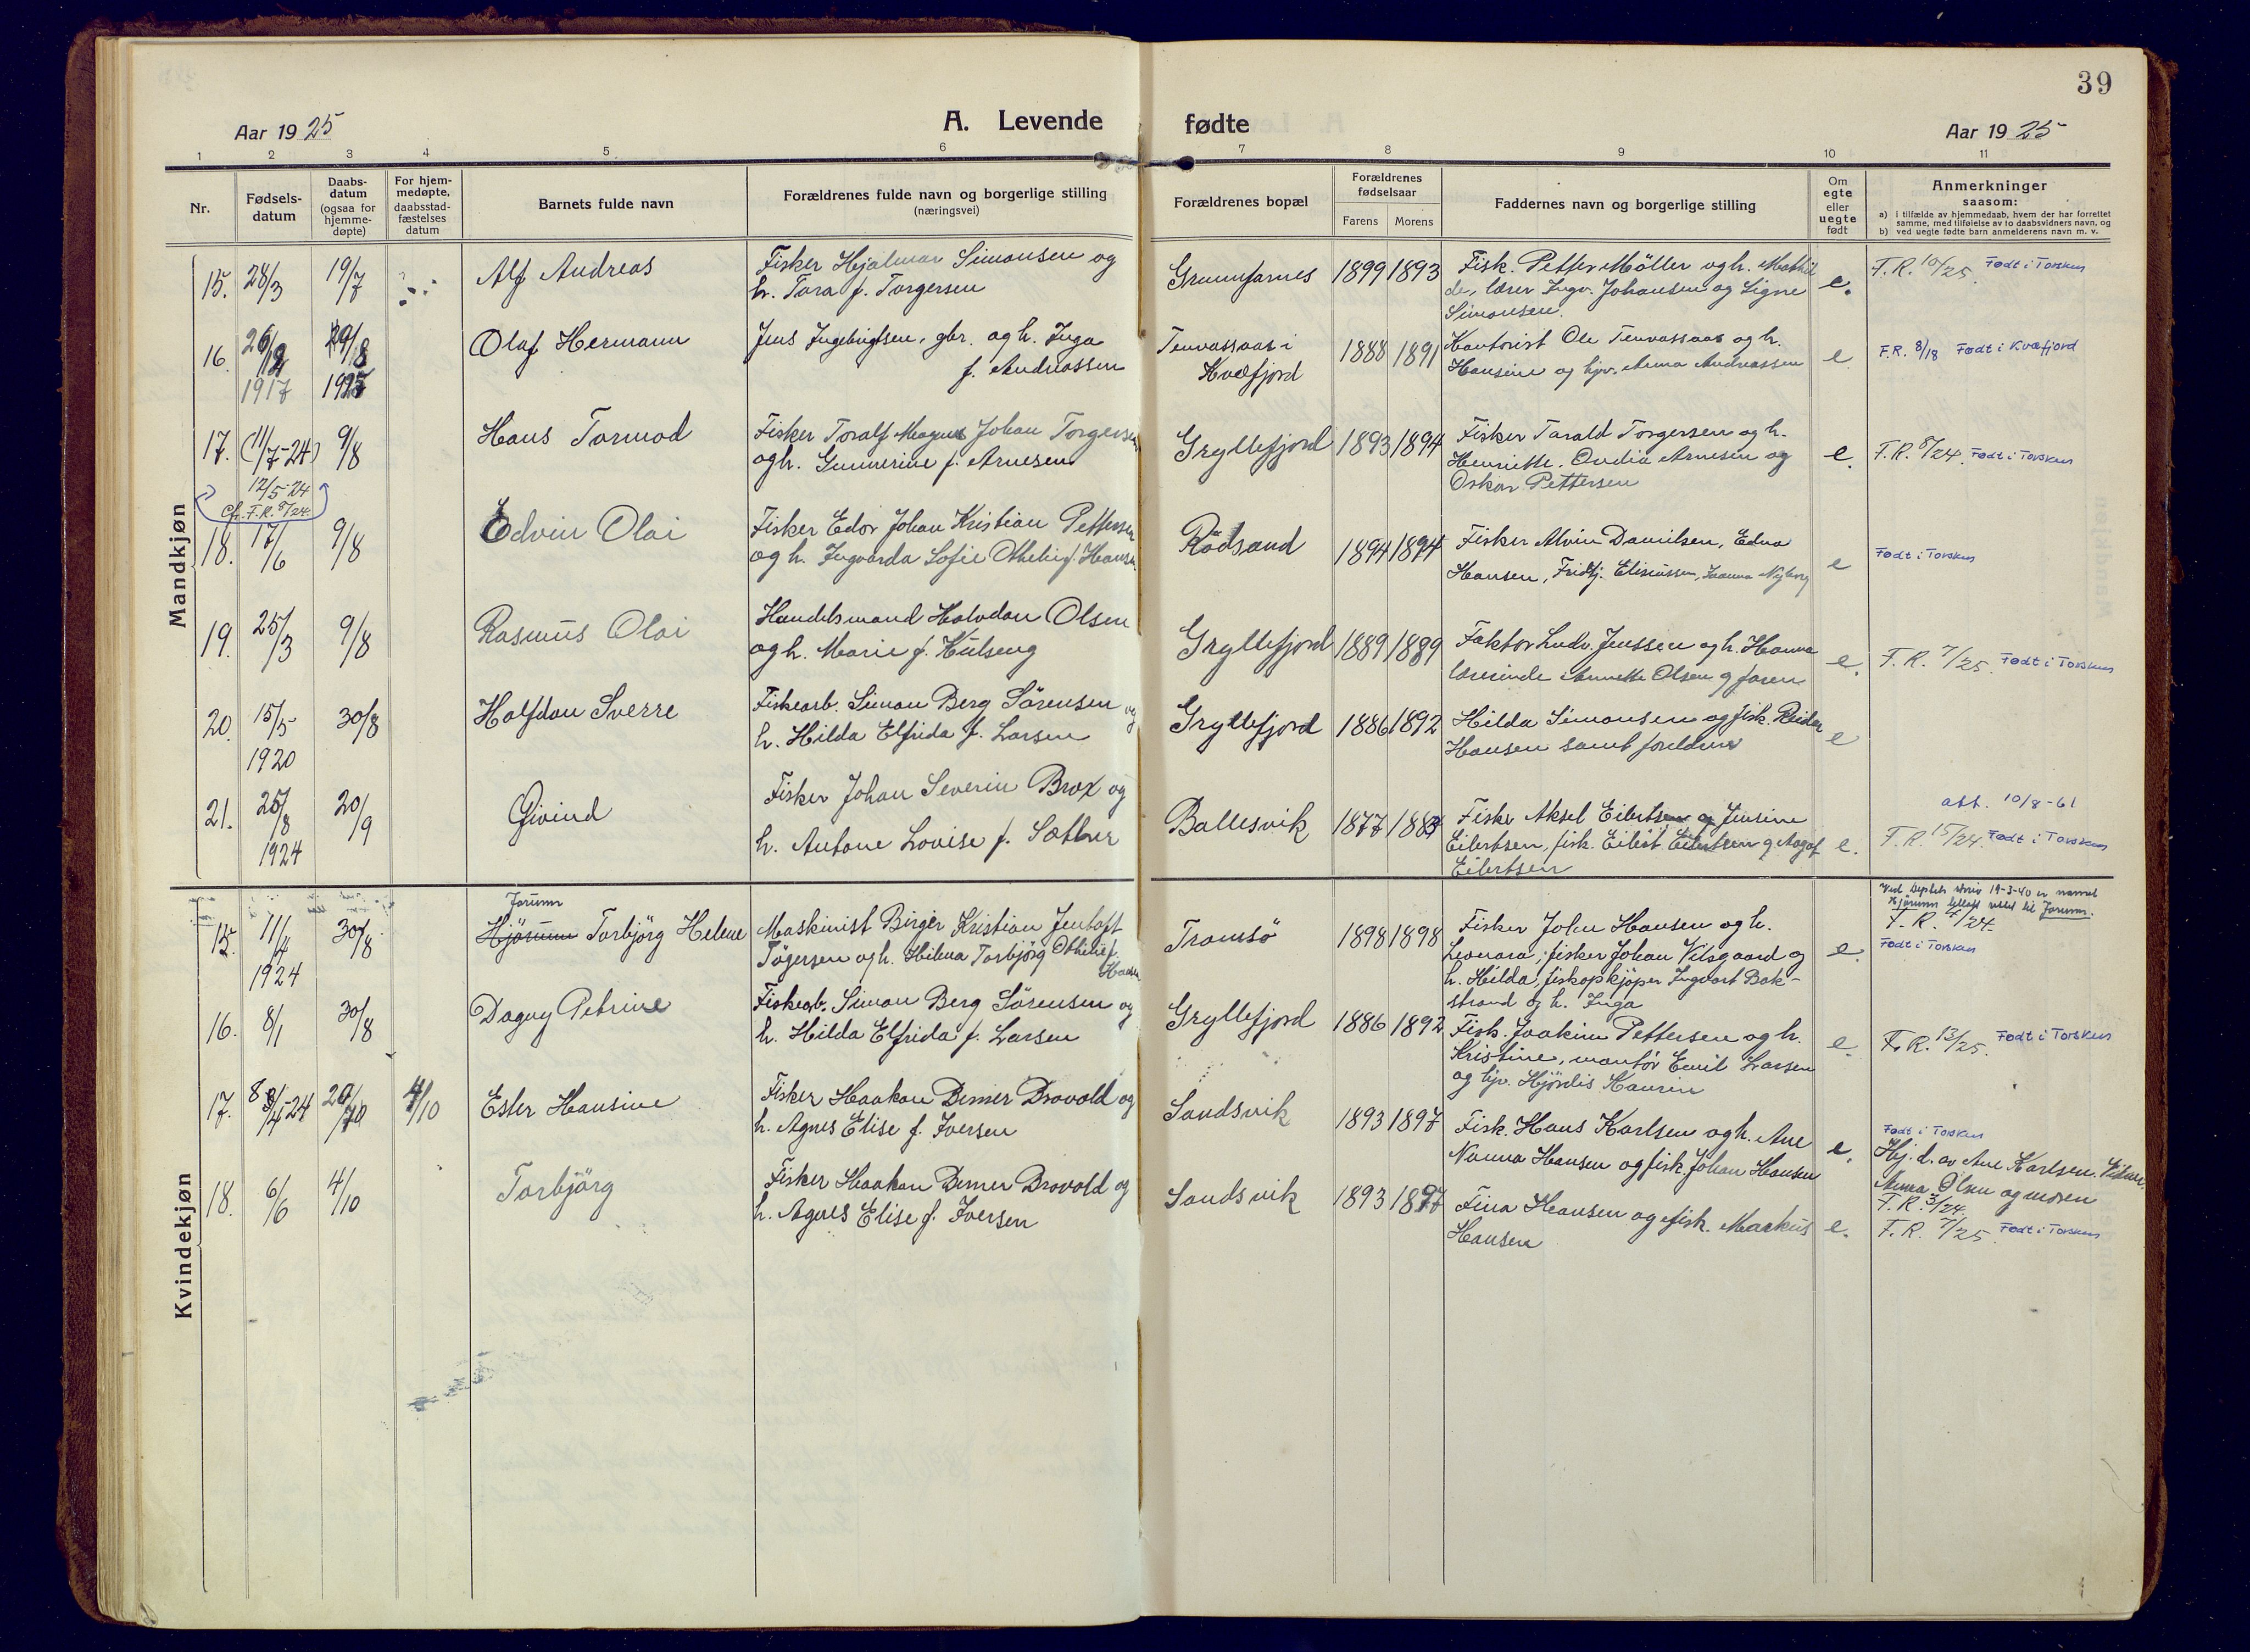 39
Aar 1925
A. Levende fødte
Aar 1925
1 2 3 4 5 6 7 8 9 10 11
Nr.
Fødsels-
datum
Daabs-
datum
(ogsaa for
hjemme-
døpte)
For hjem-
medøpte,
daabsstad-
fæstelses
datum
Barnets fulde navn
Forældrenes fulde navn og borgerlige stilling
(næringsvei)
Forældrenes bopæl
Forældrenes
fødselsaar
Farens Morens
Faddernes navn og borgerlige stilling
Om
egte
eller
uegte
født
Anmerkninger
saasom:
a) i tilfælde av hjemmedaab, hvem der har forrettet
samme, med tilføielse av to daabsvidners navn, og
b) ved uegte fødte barn anmelderens navn m. v.
Mandkjøn
15. 28/3 19/7 Alf Andreas
Fisker Hjalmar Simonsen og
h. Tora f. Torgersen
Grunnfarnes 1899 1893
Fisk. Petter Möller og h. Mathil
de, lærer Ingv. Johansen og Signe
Simonsen.
e. F.R. 10/25. Født i Torsken
16. 26/12 1917 29/8 1925 Olaf Hermann
Jens Ingebrigtsen, gbr. og h. Inga
f. Andreassen
Tenvassaas i
Kvæfjord
1888 1891
Kontorist Ole Tenvassaas og h.
Hansine og hjv. Anna Andreassen
e. F.R. 8/18 Født i Kvæfjord
17. (11/7-24) 9/8 Hans Tormod
12/5-24
cf. F.R. 8/24.
Fisker Toralf Magnus Johan Torgersen
og h. Gunnerine f. Arnesen
Gryllefjord 1893 1894
Fisker Tarald Torgersen og h.
Henriette, Ovidia Arnesen og
Oskar Pettersen
e. F.R. 8/24. Født i Torsken
18. 17/6 9/8 Edvin Olai
Fisker Edor Johan Kristian Pettersen
og h. Ingvarda Sofie Othelie f. Hansen
Rödsand 1894 1894
Fisker Alvin Danielsen, Edna
Hansen, Fridtj. Eliseussen, Joanna Nyborg
e Født i Torsken
19. 25/3 9/8 Rasmus Olai
Handelsmand Halvdan Olsen
og h. Marie f. Hulseng
Gryllefjord 1889 1889
Faktor Ludv. Jenssen og h. Hanna
lærerinde Annette Olsen og faren
e. F.R. 7/25. Født i Torsken
20. 15/5 1920 30/8 Halfdan Sverre
Fiskearb. Simon Berg Sörensen og
h. Hilda Elfrida f. Larsen
Gryllefjord 1886 1892
Hilda Simonsen og fisk. Reidar
Hansen samt foreldrene
e
21. 25/8 1924 20/9 Øivind
Fisker Johan Severin Brox og
h. Antone Lovise f. Sætther
Ballesvik 1877 1883
Fisker Aksel Eilertsen og Jensine
Eilertsen, fisk. Eilert Eilertsen og Aagot
Eilertsen
e. att. 10/8-61
F.R. 15/24. Født i Torsken
Kvindekjøn
15. 11/4 1924 30/8
Jorunn
Hjörunn Torbjörg Helene
Maskinist Birger Kristian Jentoft
Tögersen og h. Helena Torbjörg Othelie f.
Hansen
Tromsö 1898 1898
Fisker John Hansen og h.
Leonara, fisker Johan Vilsgaard og
h. Hilda, fiskopkjöper Ingvart Bak-
strand og h. Inga
e. Ved Deptets skriv 19-3-40 er navnet
Hjörunn tillatt rettet til Jorunn.
F.R. 4/24.
Født i Torsken
16. 8/1 30/8 Dagny Petrine
Fiskearb. Simon Berg Sörensen og
h. Hilda Elfrida f. Larsen
Gryllefjord 1886 1892
Fisk. Joakim Pettersen og h.
Kristine, montör Emil Larsen
og hjv. Hjördis Kaurin
e. F.R. 13/25. Født i Torsken
17. 8/4-24 20/10 4/10 Ester Hansine
Fisker Haakon Berner Dravold og
h. Agnes Elise f. Iversen
Sandsvik 1893 1897
Fisk. Hans Karlsen og h. Ane
Nanna Hansen og fisk. Johan Hansen
e. Født i Torsken
Hj. d. av Ane Karlsen. Vidner:
Anna Olsen og moren
F.R. 3/24.
18. 6/6 4/10 Torbjörg
Fisker Haakon Berner Dravold og
h. Agnes Elise f. Iversen
Sandsvik 1893 1897
Fina Hansen og fisk. Markus
Hansen
e. F.R. 7/25. Født i Torsken